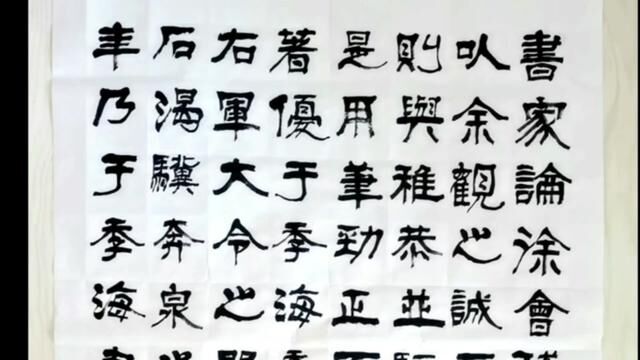 書家論徐會
㕥余觀之誠
則與稚恭並
是用筆勁正
著優于季海
右軍大令之
石渴驥奔泉
年乃于季海